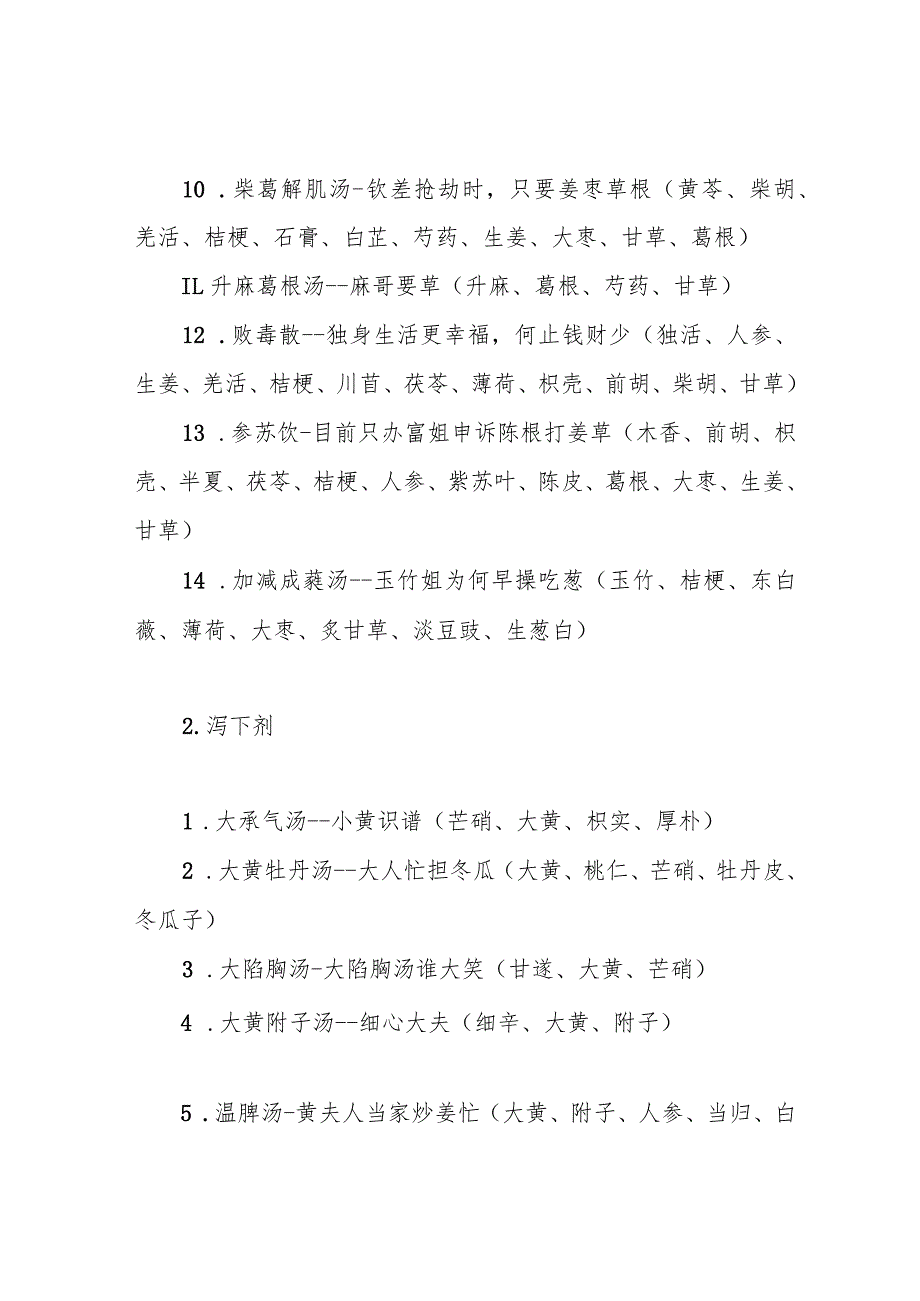 10 .柴葛解肌汤-钦差抢劫时，只要姜枣草根（黄芩、柴胡、
羌活、桔梗、石膏、白芷、芍药、生姜、大枣、甘草、葛根）
IL升麻葛根汤--麻哥要草（升麻、葛根、芍药、甘草）
12 .败毒散--独身生活更幸福，何止钱财少（独活、人参、
生姜、羌活、桔梗、川苜、茯苓、薄荷、枳壳、前胡、柴胡、甘草）
13 .参苏饮-目前只办富姐申诉陈根打姜草（木香、前胡、枳
壳、半夏、茯苓、桔梗、人参、紫苏叶、陈皮、葛根、大枣、生姜、
甘草）
14 .加减成蕤汤--玉竹姐为何早操吃葱（玉竹、桔梗、东白
薇、薄荷、大枣、炙甘草、淡豆豉、生葱白）
2.泻下剂
1 .大承气汤--小黄识谱（芒硝、大黄、枳实、厚朴）
2 .大黄牡丹汤--大人忙担冬瓜（大黄、桃仁、芒硝、牡丹皮、
冬瓜子）
3 .大陷胸汤-大陷胸汤谁大笑（甘遂、大黄、芒硝）
4 .大黄附子汤--细心大夫（细辛、大黄、附子）
5 .温脾汤-黄夫人当家炒姜忙（大黄、附子、人参、当归、白